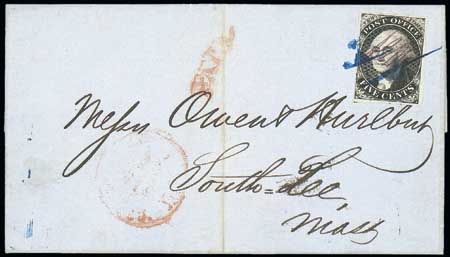 POST OFFICE
FIVE CENTS
PAID
Messrs Owen & Hurlbut
South=Lee,
Mass